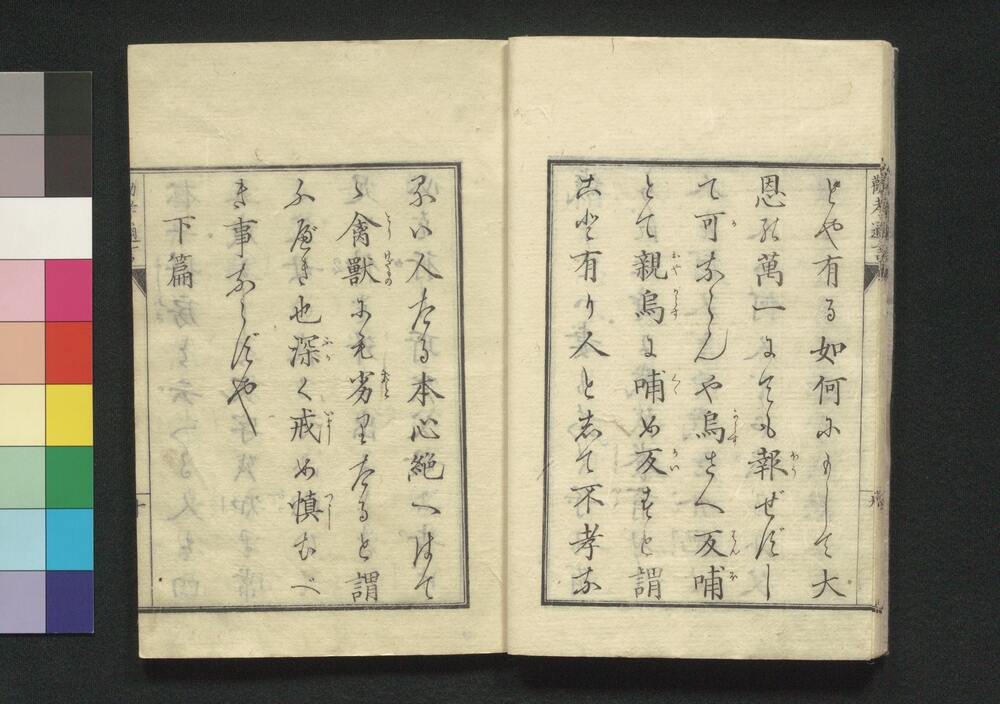 どや有る如何にもして大
恩の萬一にても報ぜずし
て可ならんや烏さへ反哺
とて親烏に哺め反すと謂
こと有り人として不孝な
るは人たる本心絶へはて
禽獣にも劣りたると謂
ふべき也深く戒め慎むべ
き事ならずや
下篇